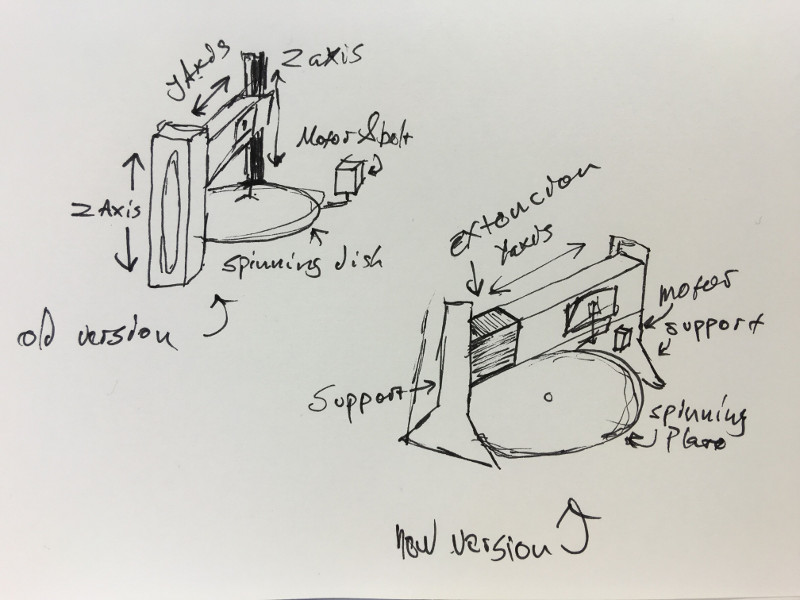 yAxds
z axis
Motor & bolt
z Axis
spinning dish
old version
extencion
yaxds
moteer
support
Support
spinning
Plane
now version